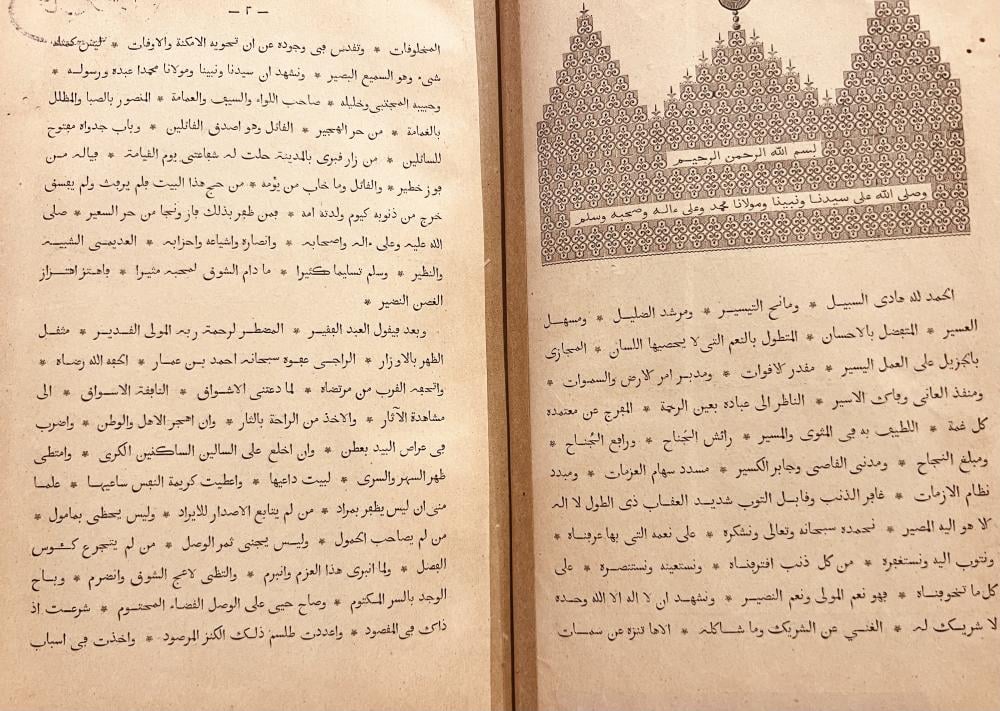 بسم الله الرحمن الرحيم
وصلى الله على سيدنا ونبينا ومولانا محمد وعلى ءاله وصحبه وسلم
الحمد لله هادى السبيل * ومانح التيسير * ومرشد الضليل * ومسهل
العسير * المتفضل بالاحسان * المتطول بالنعم التى لا يحصيها اللسان * المجازى
بالجزيل على العمل اليسير * مقدر الاقوات * ومدبر امر الارض والسموات *
ومنقذ العانى وفاك الاسير * الناظر الى عباده بعين الرحمة * المفرج عن معتمده
كل غمة * اللطيف به فى المثوى والمسير * رائش الجَناح * ورافع الجُناح *
ومبلغ النجاح * ومدنى القاصى وجابر الكسير * مسدد سهام العزمات * ومبدد
نظام الازمات * غافر الذنب وقابل التوب شديد العقاب ذى الطول لا اله
الا هو اليه المصير * نحمده سبحانه وتعالى ونشكره * على نعمه التى بها عرفناه *
ونتوب اليه ونستغفره * من كل ذنب اقترفناه * ونستعينه ونستنصره * على
كل ما تخوفناه * فهو نعم المولى ونعم النصير * ونشهد ان لا اله الا الله وحده
لا شريك له * الغني عن الشريك وما شاكله * الاها تنزه عن سمات
— ٢ —
المخلوقات * وتقدس فى وجوده عن ان تحويه الامكنة والاوقات * ليس كمثله
شىء وهو السميع البصير * ونشهد ان سيدنا ونبينا ومولانا محمدا عبده ورسوله *
وحبيبه المجتبى وخليله * صاحب اللواء والسيف والعمامة * المنصور بالصبا والمظلل
بالغمامة * من حر الهجير * القائل وهو اصدق القائلين * وباب جدواه مفتوح
للسائلين * من زار قبرى بالمدينة حلت له شفاعتى يوم القيامة * فياله من
فوز خطير * والقائل وما خاب من يؤمه * من حج هذا البيت فلم يرفث ولم يفسق
خرج من ذنوبه كيوم ولدته امه * فمن ظفر بذلك فاز ونجا من حر السعير * صلى
الله عليه وعلى ءاله واصحابه * وانصاره واشياعه واحزابه * العديمى الشبيه
والنظير * وسلم تسليما كثيرا * ما دام الشوق لمحبه مثيرا * فاهتز اهتزاز
الغصن النضير *
وبعد فيقول العبد الفقير * المضطر لرحمة ربه المولى القدير * مثقل
الظهر بالاوزار * الراجى عفوه سبحانه احمد بن عمار * الحفه الله رضاه *
واتحفه القرب من مرتضاه * لما دعتنى الاشواق * النافقة الاسواق * الى
مشاهدة الآثار * والاخذ من الراحة بالثار * وان اهجر الاهل والوطن * واضرب
فى عراض البيد بعطن * وان اخلع على السالين الساكنين الكرى * وامتطى
ظهر السهر والسرى * لبيت داعيها * واعطيت كريمة النفس ساعيها * علما
منى ان ليس يظفر بمراد * من لم يتابع الاصدار للايراد * وليس يحظى بمامول *
من لم يصاحب الحمول * وليس يجتنى ثمر الوصل * من لم يتجرع كئوس
الفصل * ولما انبرى هذا العزم وانبرم * والتظى لاعج الشوق وانضرم * وباح
الوجد بالسر المكتوم * وصاح حيى على الوصل القضاء المحتوم * شرعت اذ
ذاك فى المقصود * واعددت طلسم ذلك الكنز المرصود * واخذت فى اسباب